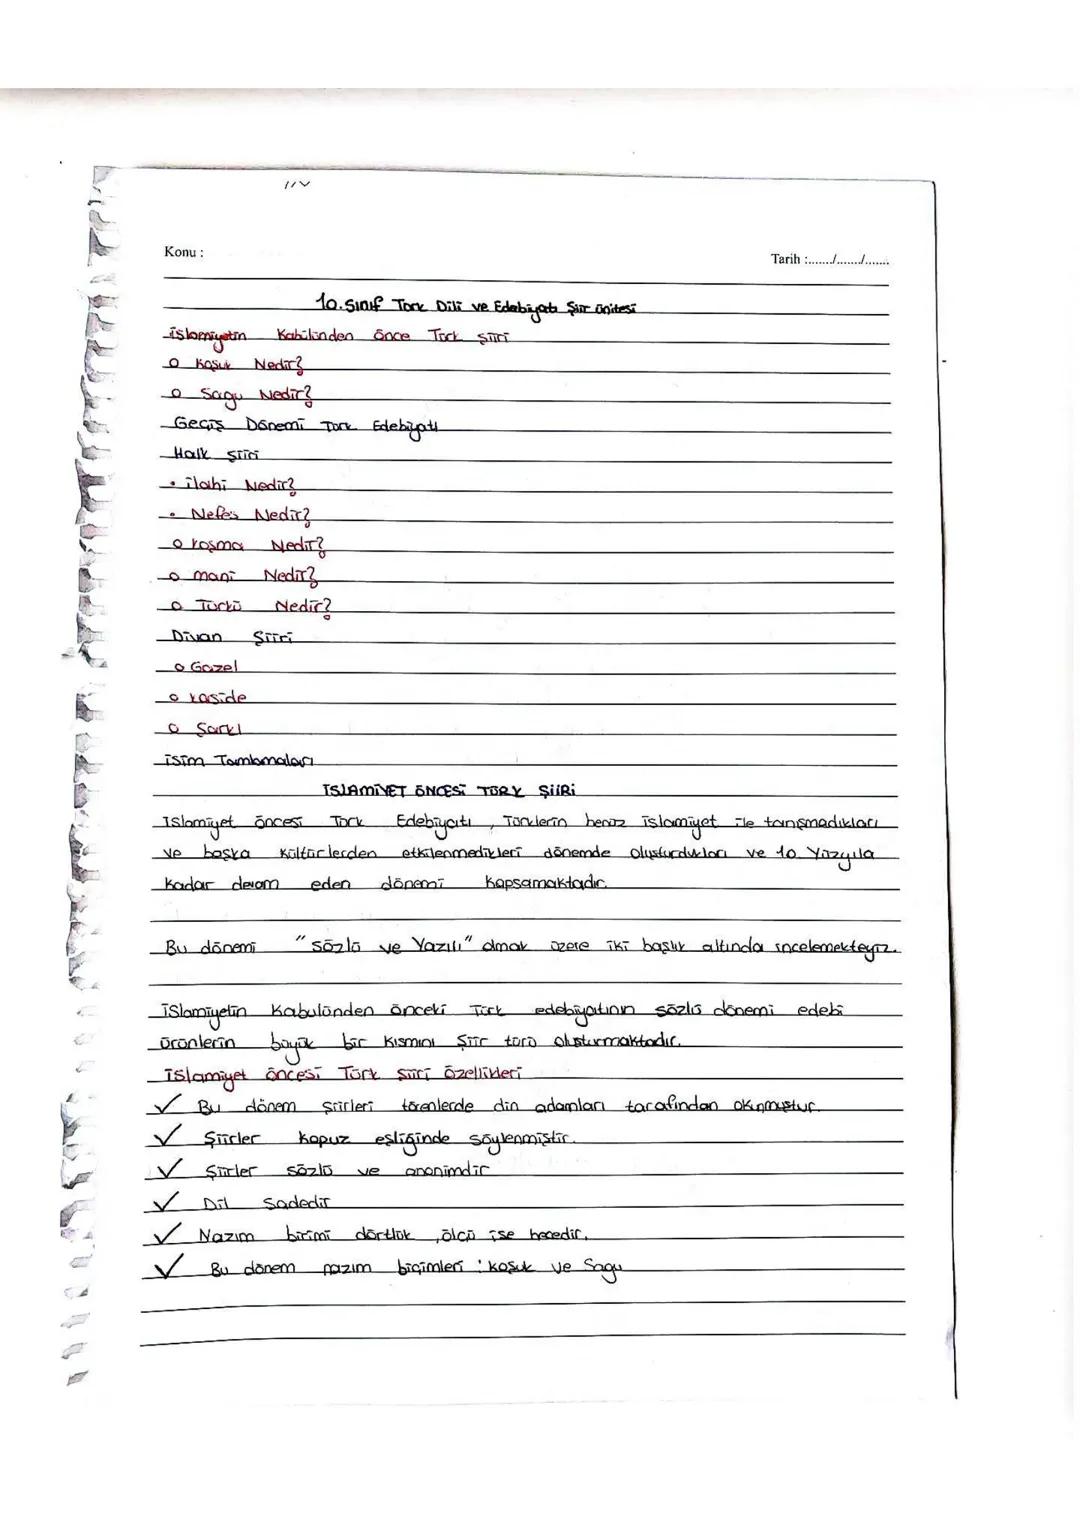 Konu :
Tarih :......./......./.......
10. Sınıf Türk Dili ve Edebiyatı Şiir ünitesi
İslamiyetin Kabülünden Önce Türk Şiiri
o Koşuk Nedir?
o Sagu Nedir?
Geçiş Dönemi Türk Edebiyatı
Halk Şiiri
• ilahi Nedir?
• Nefes Nedir?
o Koşma Nedir?
o mani Nedir?
o Türkü Nedir?
Divan Şiiri
o Gazel
o kaside
o Şarkı
isim Tamlamaları
İSLAMİYET ÖNCESİ TÜRK ŞİİRİ
İslamiyet öncesi Türk Edebiyatı, Türklerin henüz islamiyet ile tanışmadıkları
ve başka Kültürlerden etkilenmedikleri dönemde oluşturdukları ve 10. Yüzyıla
Kadar devam eden dönemi Kapsamaktadır.
Bu dönemi "Sözlü ve Yazılı" olmak üzere iki başlık altında incelemekteyiz.
İslamiyetin Kabulünden önceki Türk edebiyatının sözlü dönemi edebi
ürünlerin büyük bir kısmını Şiir türü oluşturmaktadır.
İslamiyet öncesi Türk Şiiri Özellikleri
✓ Bu dönem şiirleri törenlerde din adamları tarafından okunmuştur.
✓ Şiirler Kopuz eşliğinde söylenmiştir.
✓ Şiirler sözlü ve anonimdir
✓ Dil Sadedir
✓ Nazım birimi dörtlük, ölçü ise hecedir.
✓ Bu dönem nazım biçimleri : Koşuk ve Sagu